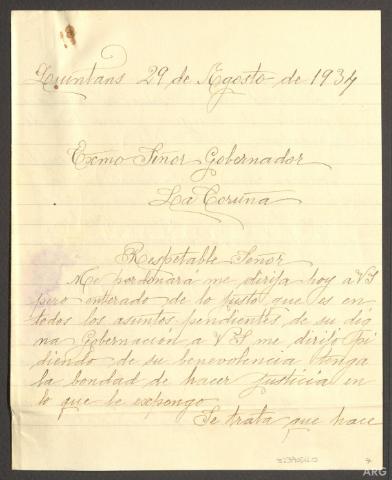 Quintans 29 de Agosto de 1934
Exmo Señor Gobernador
La Coruña
Respetable Señor
Me perdonará me dirija hoy á VS
pero enterado de lo justo que es en
todos los asuntos pendientes de su dig
na Gobernación a VS me dirijo pi
diendo de su benevolencia tenga
la bondad de hacer justicia en
lo que le expongo
Se trata que hace
ARG